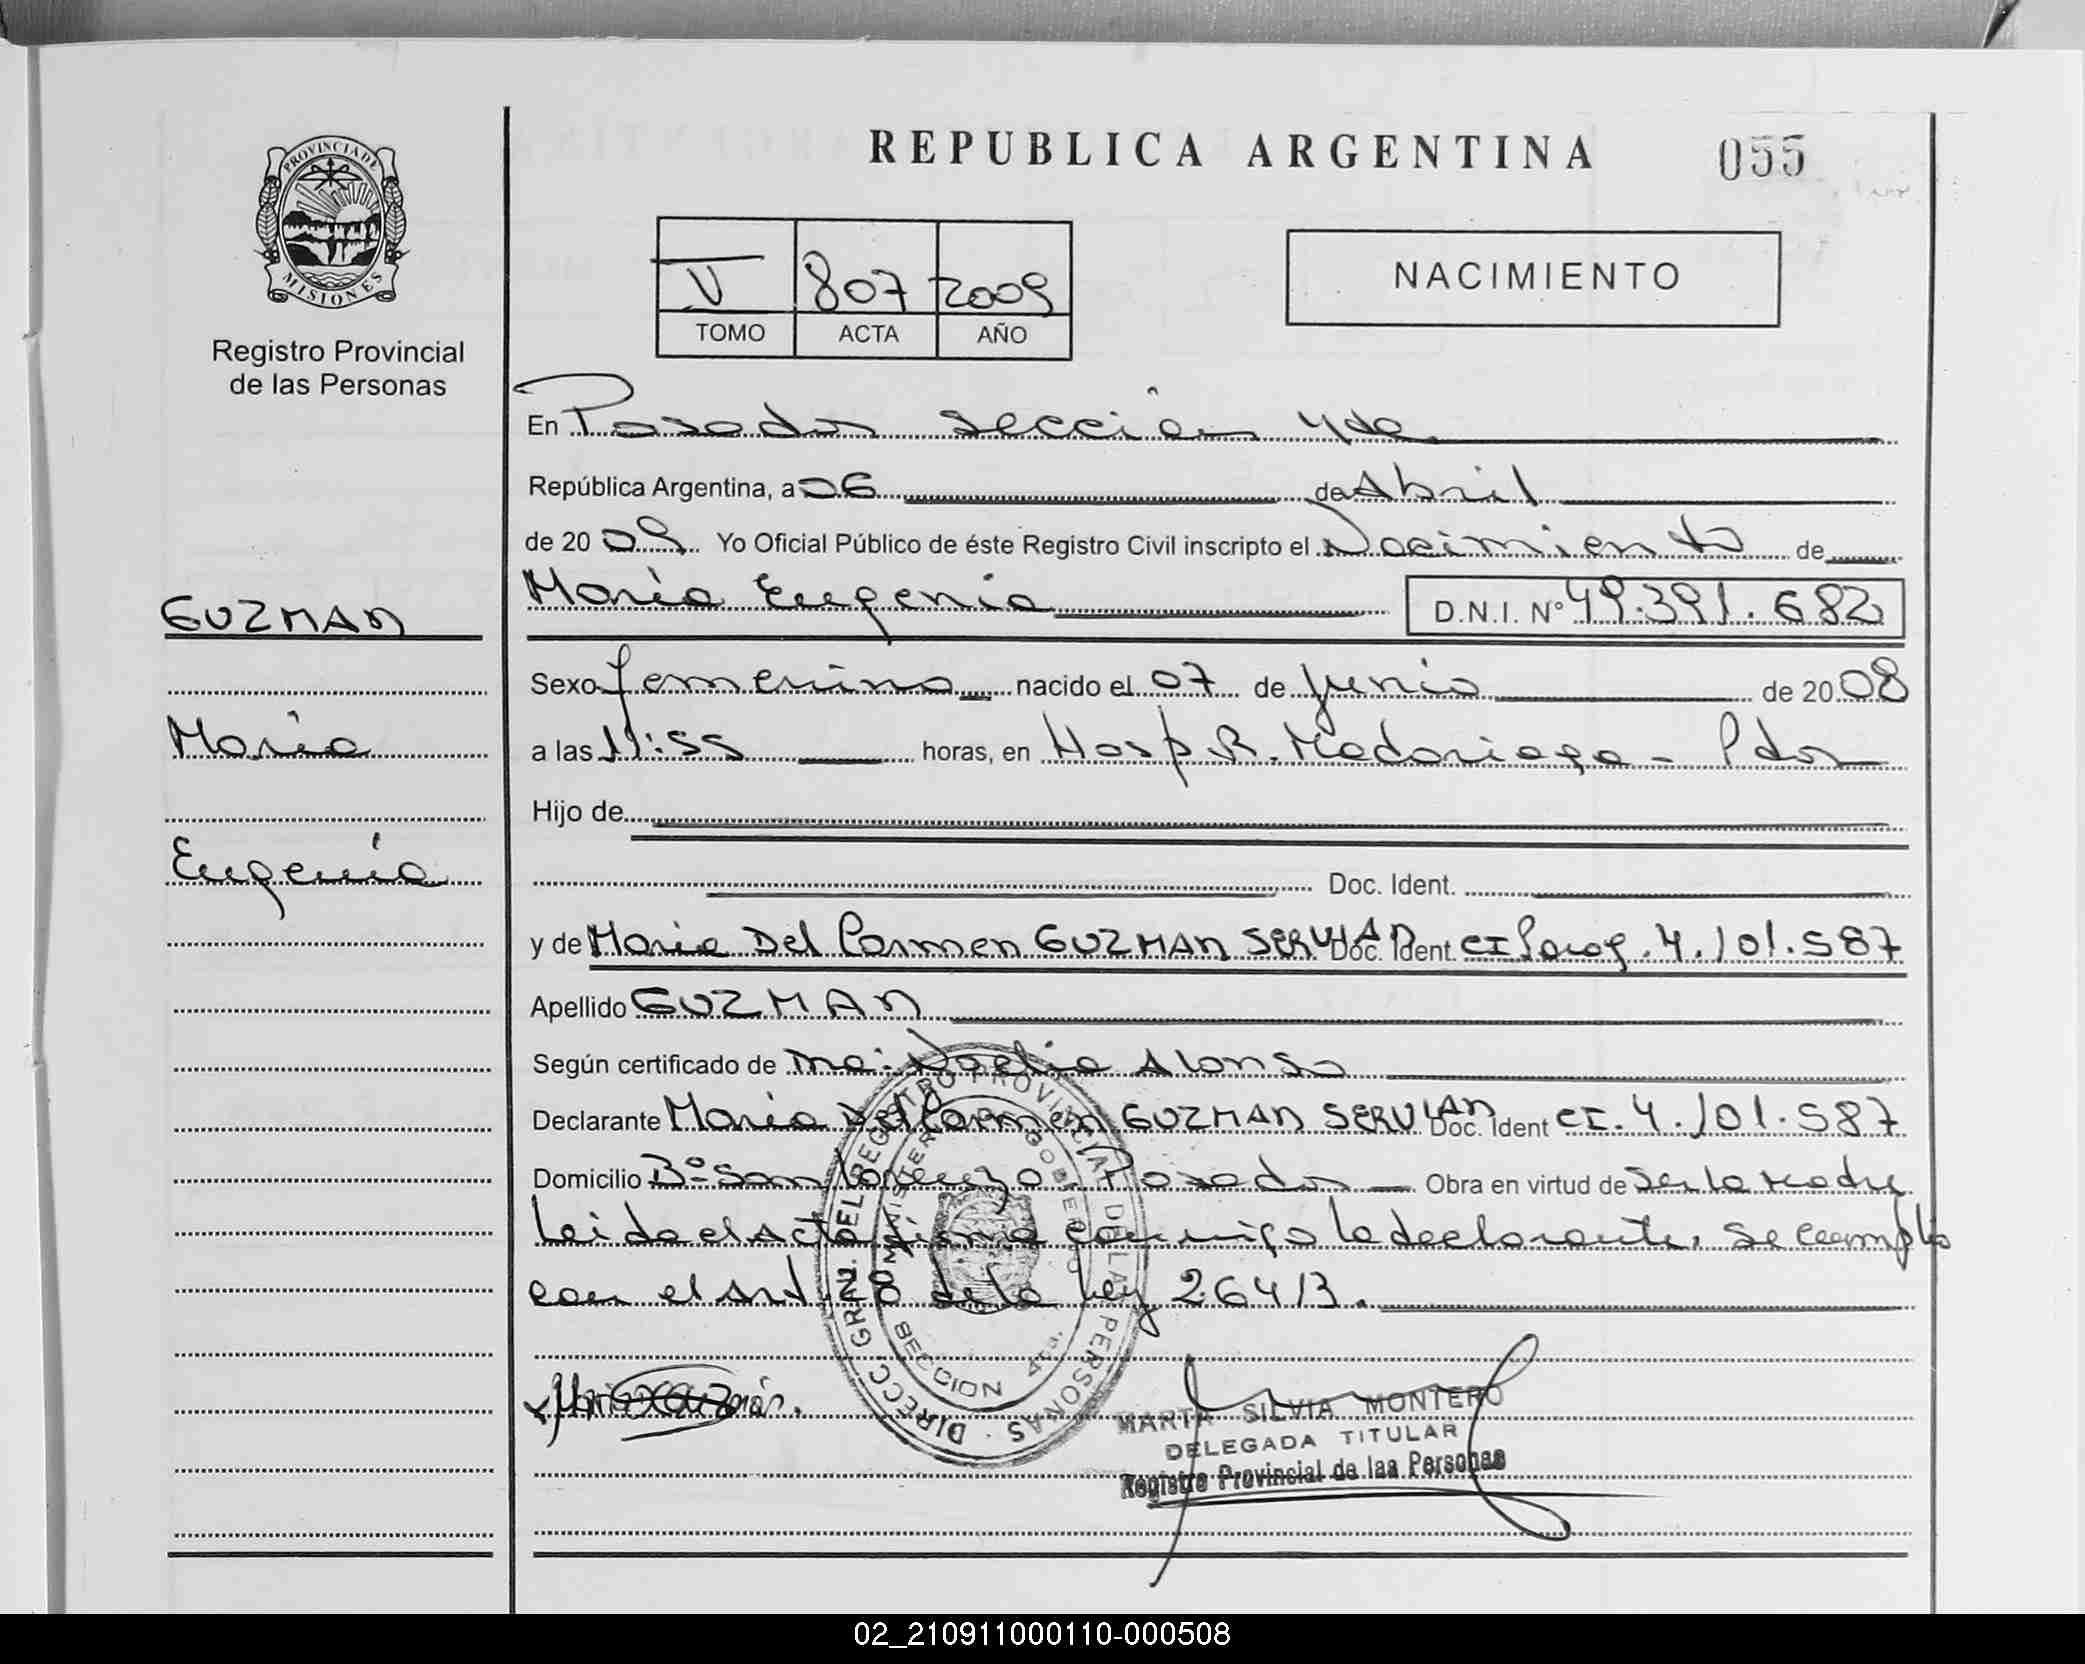 PROVINCIA DE
MISIONES
Registro Provincial
de las Personas
GUZMAN
María
Eugenia
REPUBLICA ARGENTINA
055
V 807 2009
TOMO ACTA AÑO
NACIMIENTO
En Posadas sección 4da
República Argentina, a 06 de Abril
de 2009 Yo Oficial Público de éste Registro Civil inscripto el Nacimiento de
María Eugenia D.N.I. Nº 49.391.682
Sexo femenino nacido el 07 de junio de 2008
a las 11:55 horas, en Hosp R. Madariaga - Pdas
Hijo de
Doc. Ident.
y de María Del Carmen GUZMAN SERVIAN Doc. Ident. CI Parag. 4.101.587
Apellido GUZMAN
Según certificado de Noelia Alonso
Declarante María Del Carmen GUZMAN SERVIAN Doc. Ident CI. 4.101.587
Domicilio Bº San Lorenzo Posadas Obra en virtud de Ser la Madre
Leida el acta firma conmigo la declarante, se cumplio
con el Art 28 de la Ley 26413.
DIRECC. GRAL. DEL REGISTRO PROVINCIAL DE LAS PERSONAS
MINISTERIO DE GOBIERNO
SECCION 4ta.
MARTA SILVIA MONTERO
DELEGADA TITULAR
Registro Provincial de las Personas
02_210911000110-000508